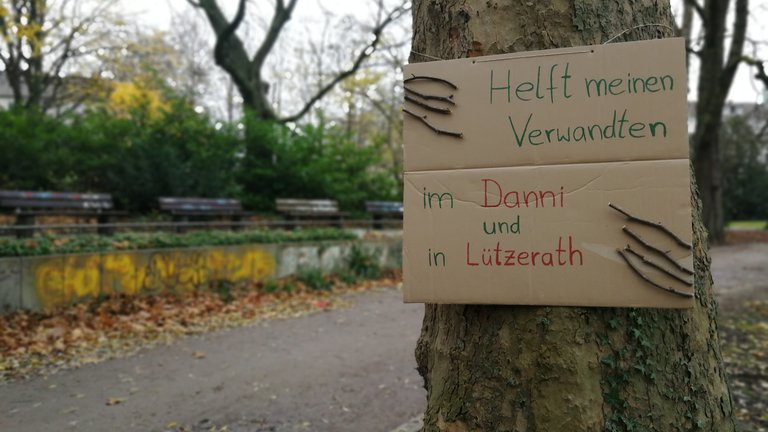 Helft meinen
Verwandten
im Danni
und
in Lützerath